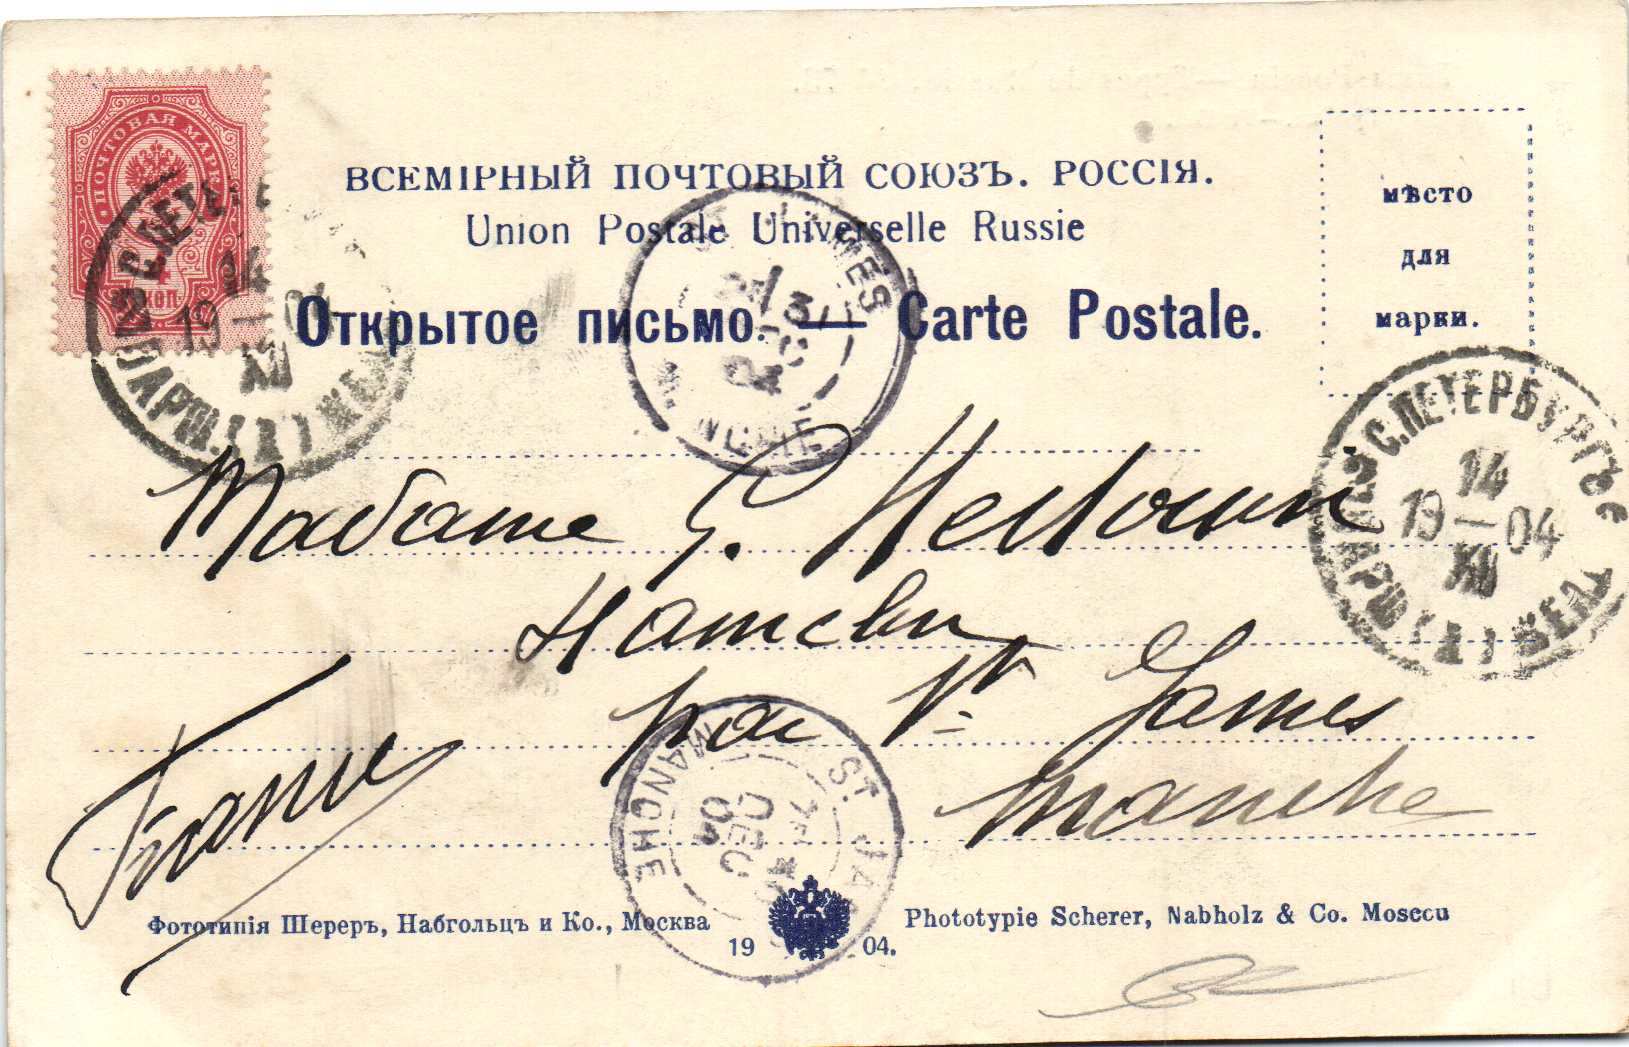 ПОЧТОВАЯ МАРКА
4
КОП.
ВСЕМІРНЫЙ ПОЧТОВЫЙ СОЮЗЪ. РОССІЯ.
Union Postale Universelle Russie
Открытое письмо. — Carte Postale.
мѣсто
для
марки.
С.ПЕТЕРБУРГЪ
14
19 — 04
XII
ВАРШ.
31
04
Madame G.
par St James
Manche
France
ST. JA
MANCHE
DEC
04
Фототипія Шереръ, Набгольцъ и Ко., Москва
1904.
Phototypie Scherer, Nabholz & Co. Moscou